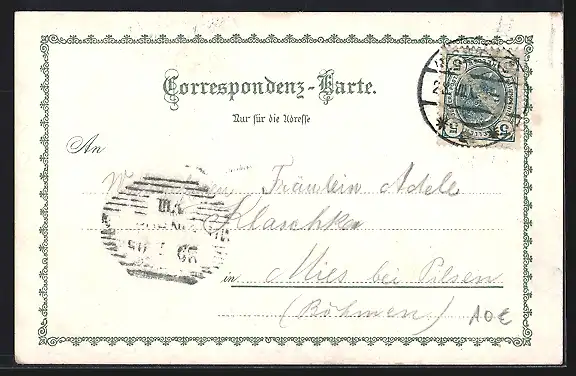 Correspondenz-Karte.
Nur für die Adresse
An
Fräulein Adele
Klaschka
in Mies bei Pilsen
(Böhmen)
10€
5
5